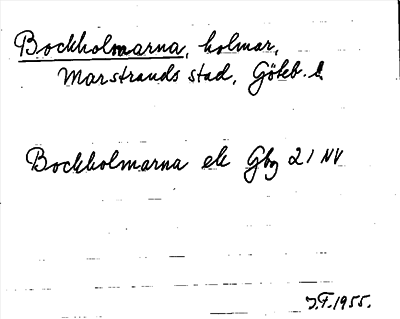 Bockholmarna, holmar,
Marstrands stad, Göteb. l
Bockholmarna ek Gbg 21 NV
J.F. 1955.